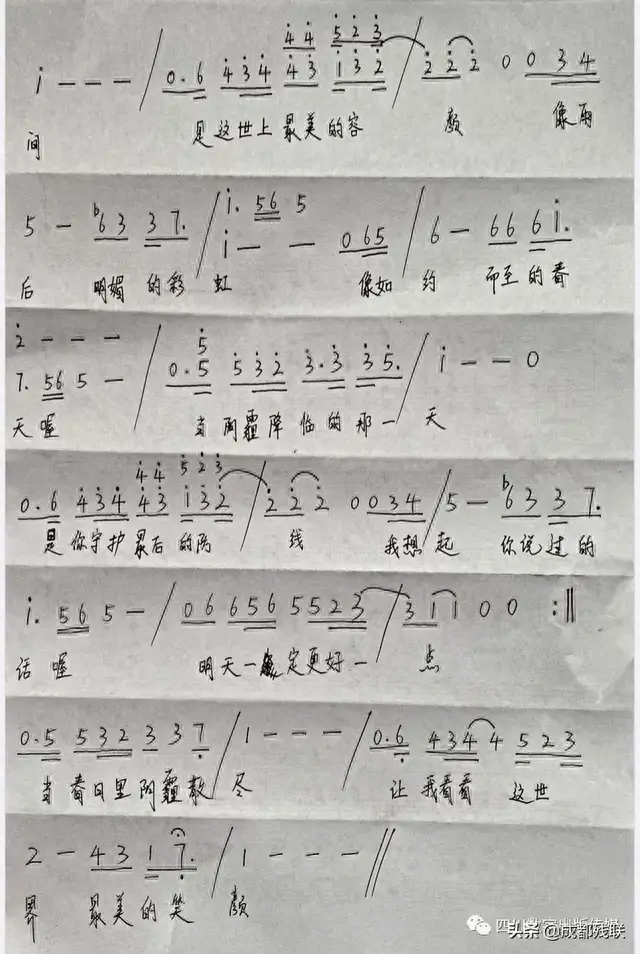 i - - - / 0.6 434 43 132 / 2 2 2 0 034
44 523
间 是这世上最美的容 颜 像雨
5 - b63 37. / i. 56 5
i - - 065 / 6 - 66 6i.
后 明媚的彩 虹 像如 约 而至的春
2 - - -
7. 56 5 - / 0.5 532 3.3 35. / i - - 0
5
天喔 当阴霾降临的那一 天
44 523
0.6 434 43 132 / 2 2 2 0 034 / 5 - b63 37.
是你守护最后的防 线 我想起 你说过的
i. 56 5 - / 06 656 5523 / 3 1 1 0 0 :||
话喔 明天一定更好一 点
0.5 532 3 3 7 / 1 - - - / 0.6 434 4 523
当春日里阴霾散 尽 让我看看 这世
2 - 43 17. / 1 - - - //
界 最美的笑 颜
四川数字出版传媒
头条 @成都残联